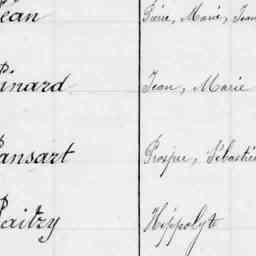 Pierre, Marie, Jean
Pinard Jean, Marie
Pansart Prosper, Sébastie
Paitzy Hippolyt